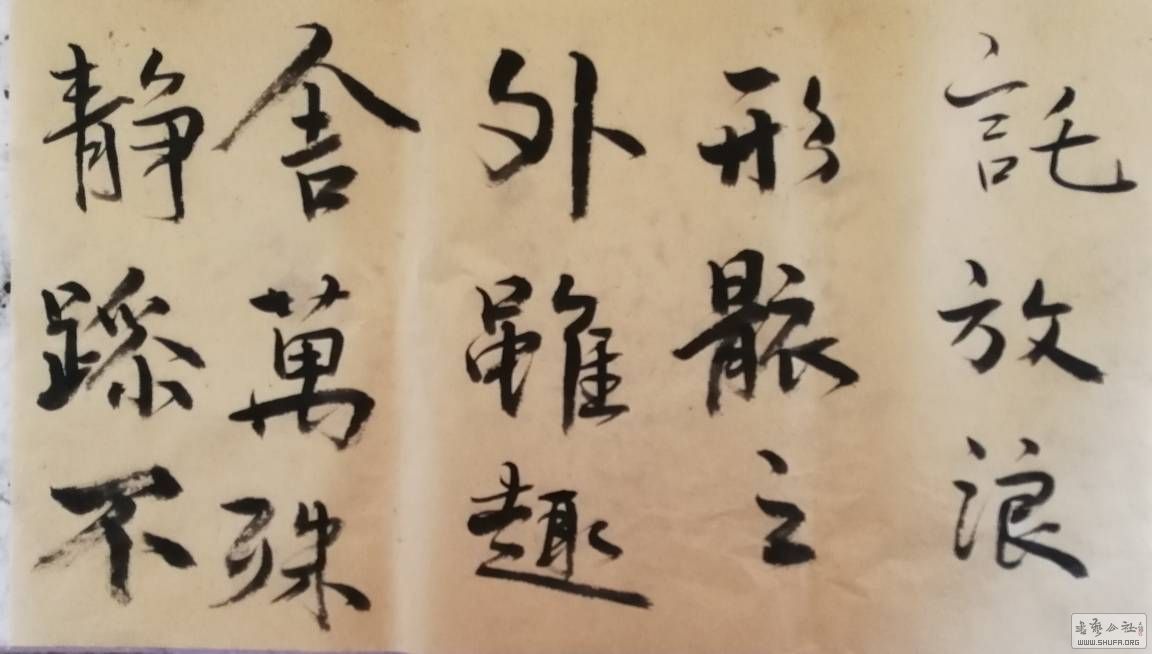 託放浪
形骸之
外雖趣
舍萬殊
静躁不
书艺公社
WWW.SHUFA.ORG